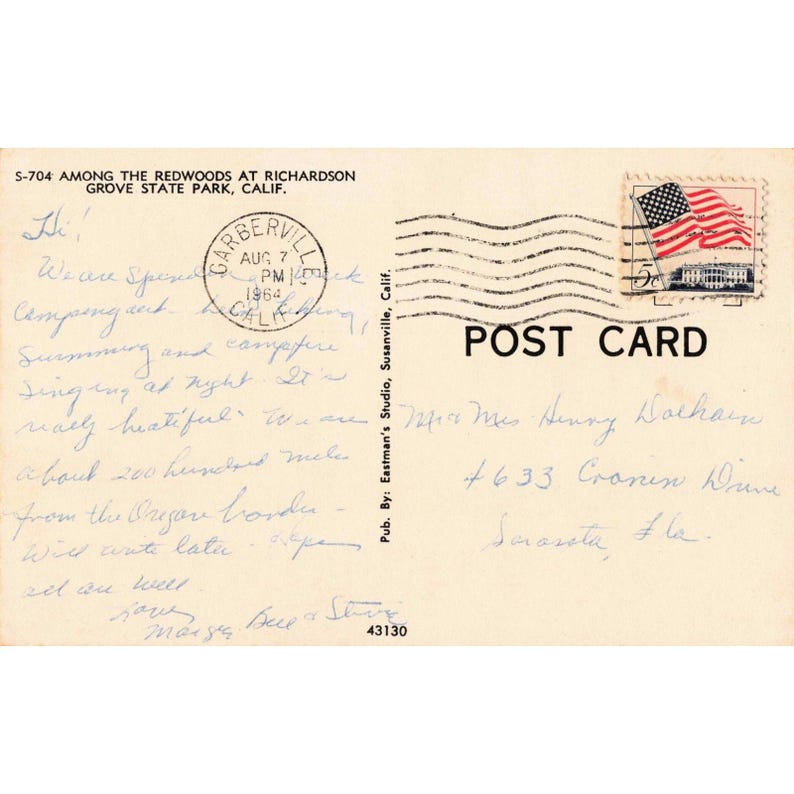 S-704 AMONG THE REDWOODS AT RICHARDSON
GROVE STATE PARK, CALIF.
Hi!
We are spending a week
camping out - hiking,
swimming and campfire
singing at night. It's
really beatiful. We are
about 200 hundred miles
from the Oregon border -
Will write later - Hope
all are well
Love,
Marge, Bill & Stevie
GARBERVILLE
AUG 7
PM
1964
CALIF.
Pub. By: Eastman's Studio, Susanville, Calif.
43130
5c
POST CARD
Mr & Mrs Henry
4633 Drive
Sarasota, Fla.